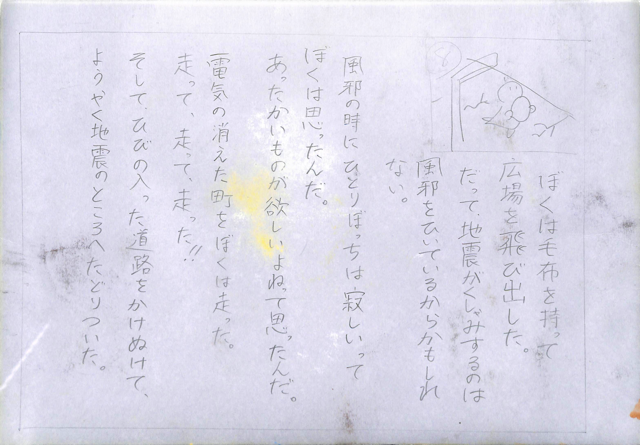 ぼくは毛布を持って
広場を飛び出した。
だって、地震がくしゃみするのは
風邪をひいているからかもしれ
ない。
風邪の時にひとりぼっちは寂しいって
ぼくは思ったんだ。
あったかいものが欲しいよねって思ったんだ。
電気の消えた町をぼくは走った。
走って、走って、走った!!
そして、ひびの入った道路をかけぬけて、
ようやく地震のところへたどりついた。